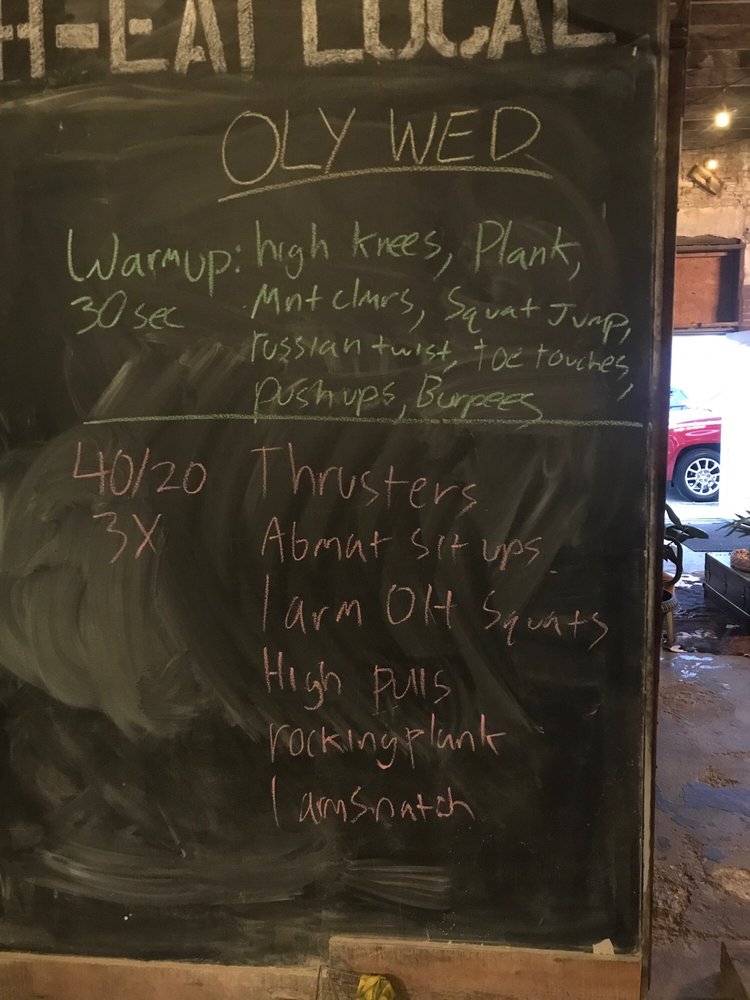 H-EAT LOCAL
OLY WED
Warmup: high knees, Plank,
30 sec Mnt clmrs, Squat Jump,
russian twist, toe touches,
push ups, Burpees
40/20 Thrusters
3X Abmat sit ups
1 arm OH Squats
High pulls
rocking plank
1 arm snatch